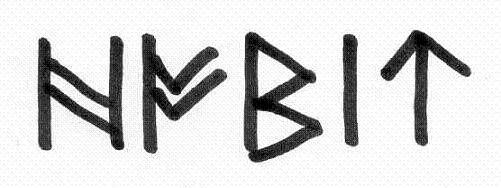 ᚻᚩᛒᛁᛏ